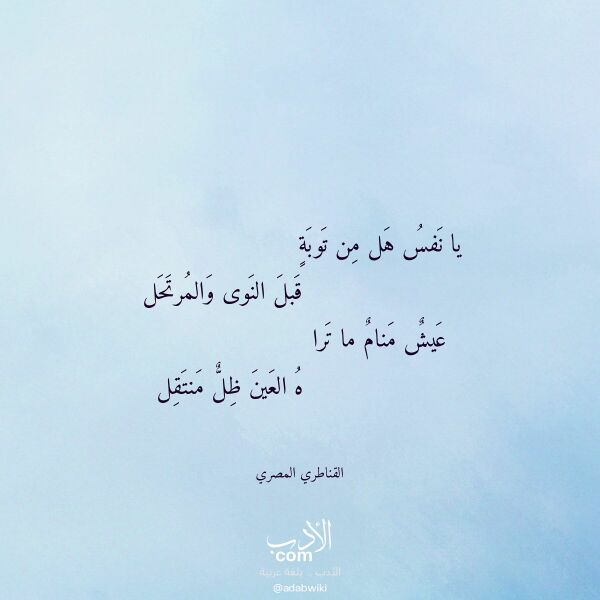 يا نَفسُ هَل مِن تَوبَةٍ
قَبلَ النَوى وَالمُرتَحَل
عَيشٌ مَنامٌ ما تَرا
هُ العَينَ ظِلٌّ مَنتَقِل
القناطري المصري
الأدب
com
الأدب .. بلغة عربية
@adabwiki